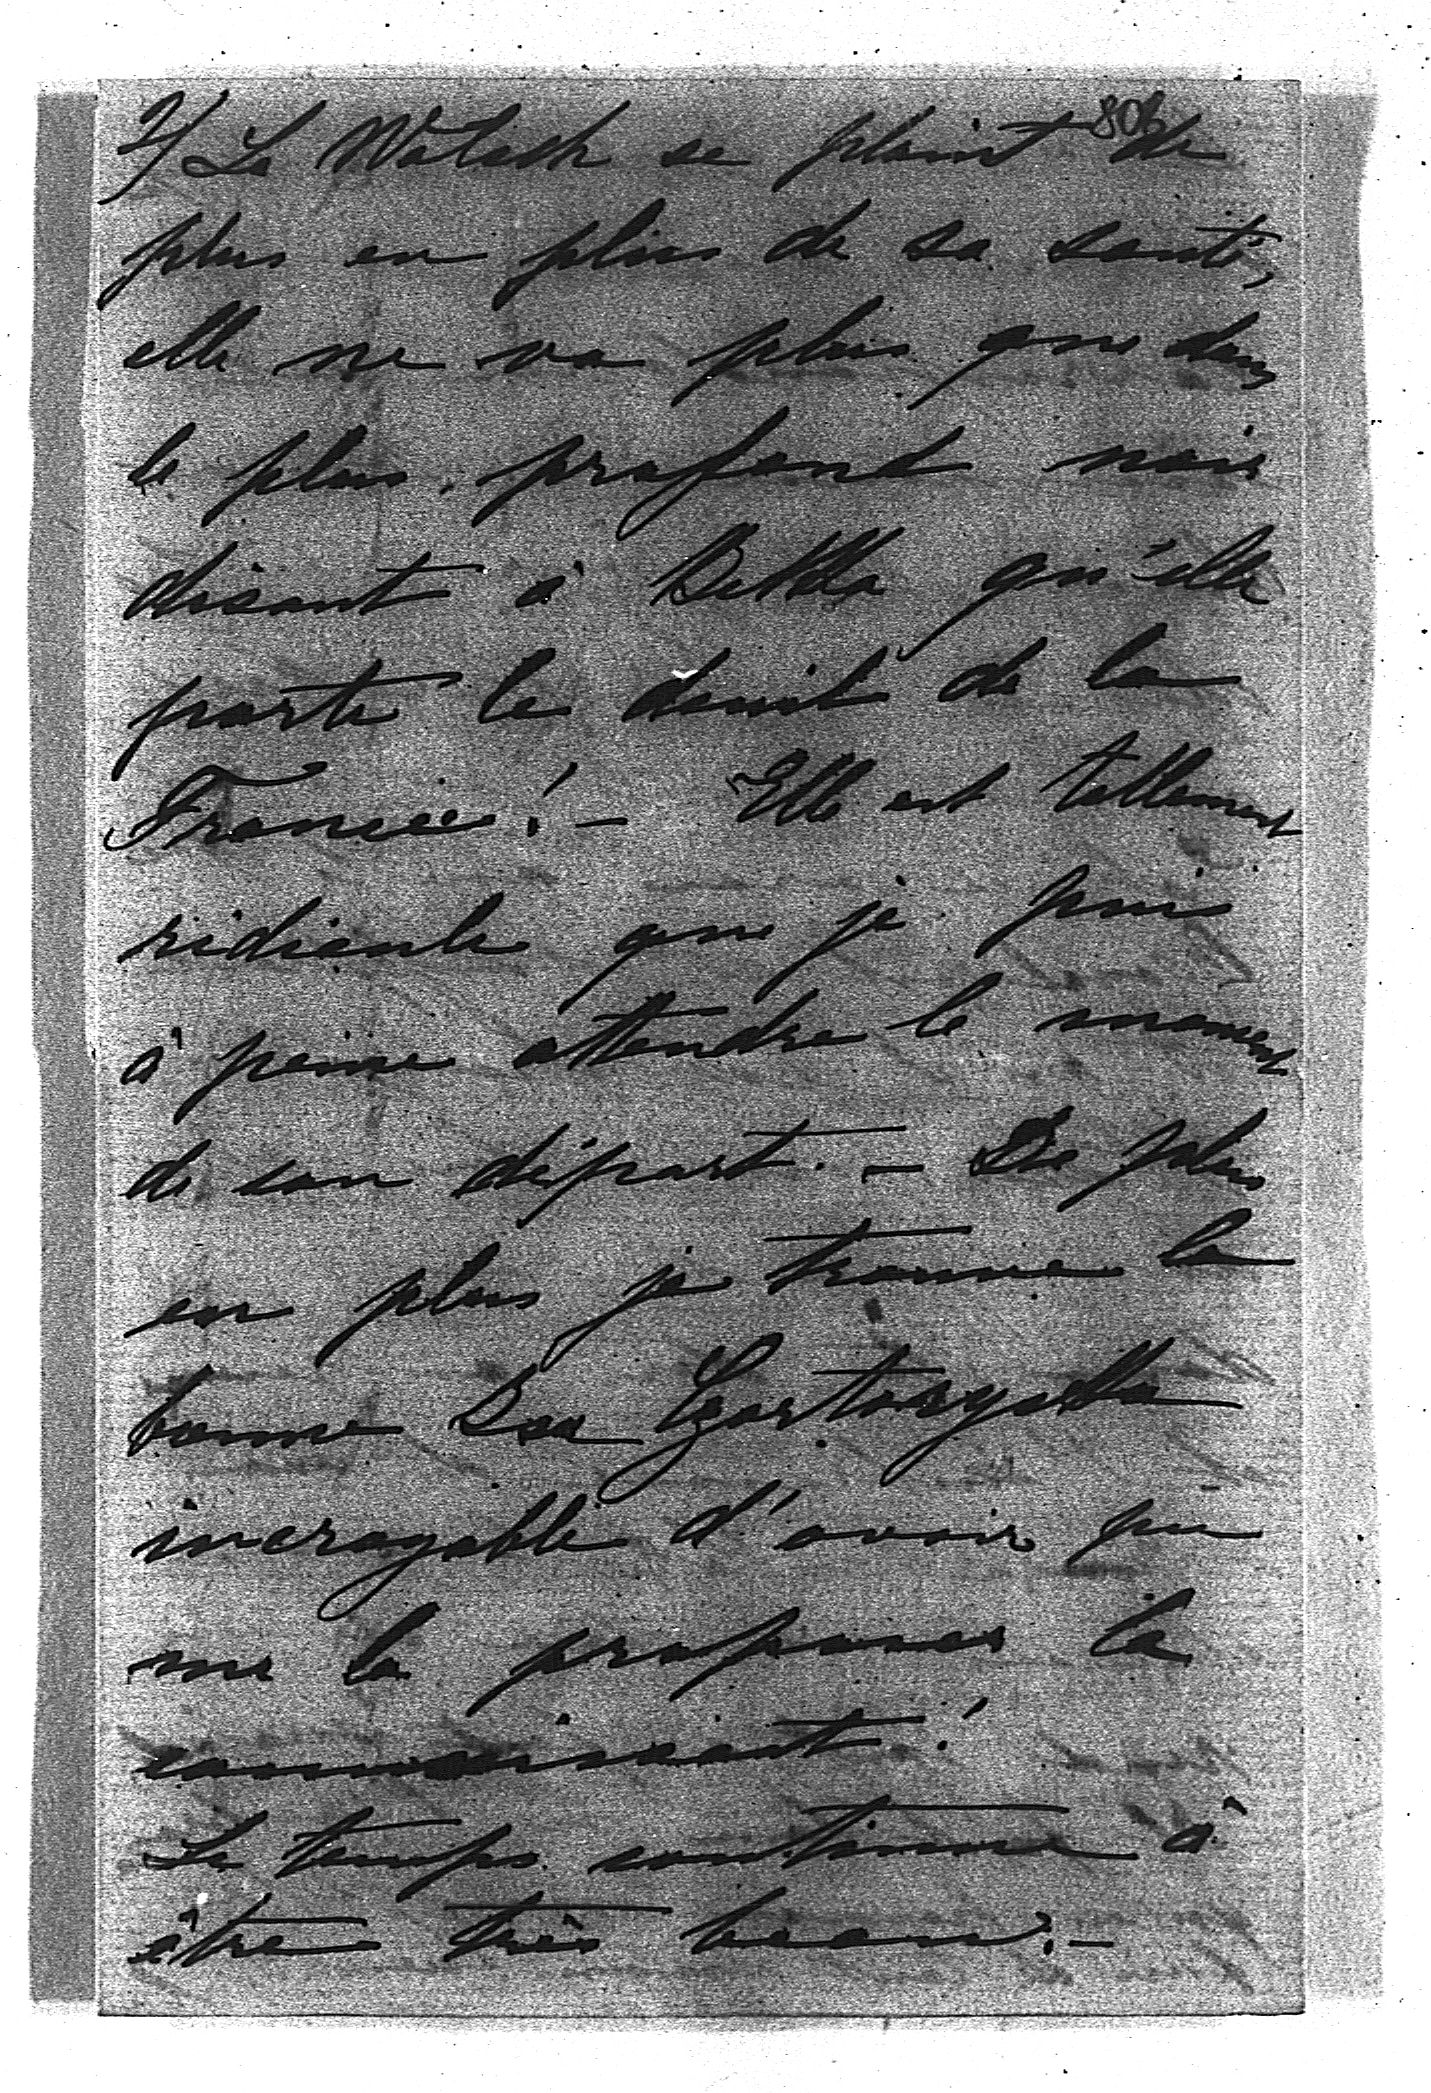 806
2/ La Walash se plaint de
plus en plus de sa santé,
elle ne va plus que dans
le plus profond noir
disant à Bettka qu'elle
porte le deuil de la
France! – Elle est tellement
ridicule que je puis
à peine attendre le moment
de son départ. – De plus
en plus je trouve la
bonne Csa Czartoryska
incroyable d'avoir pu
me la proposer la
connaissant!
Le temps continue à
être très beau. –